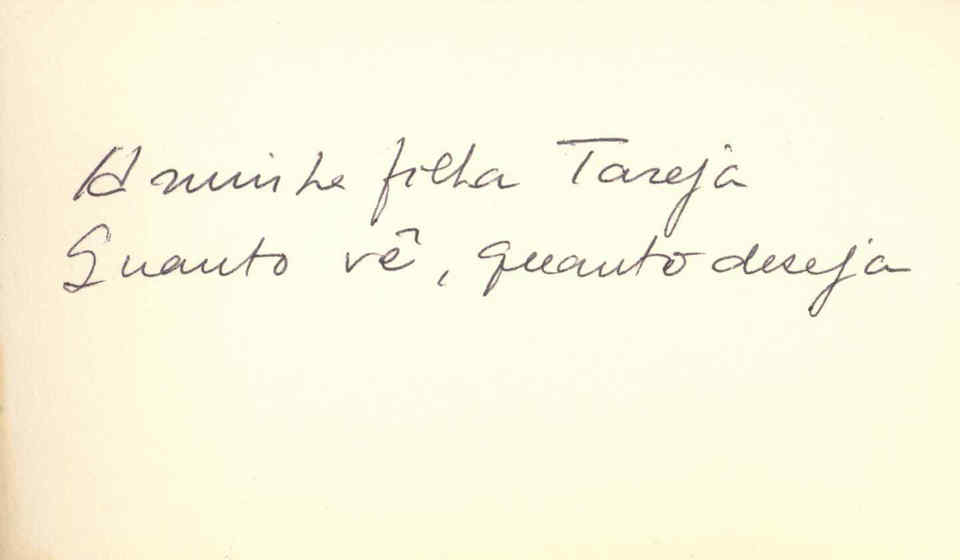 A minha filha Tareja
Quanto vê, quanto deseja